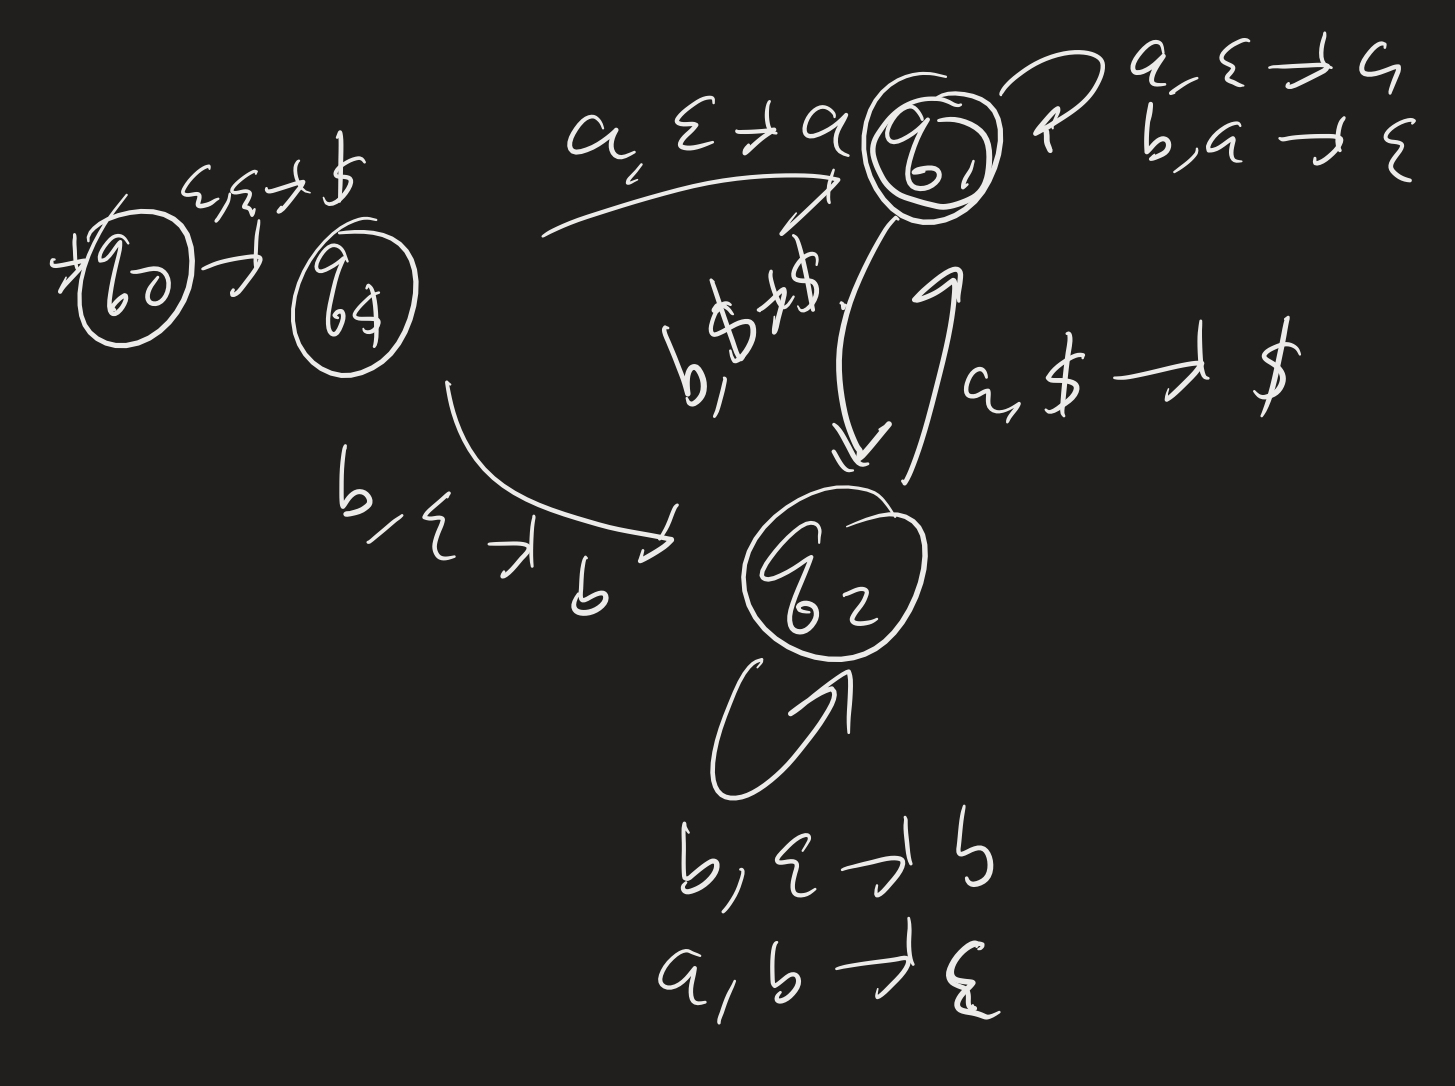 ε,ε→$
q0
q$
a,ε→a
q1
a,ε→a
b,a→ε
b,$→$
a,$→$
b,ε→b
q2
b,ε→b
a,b→ε